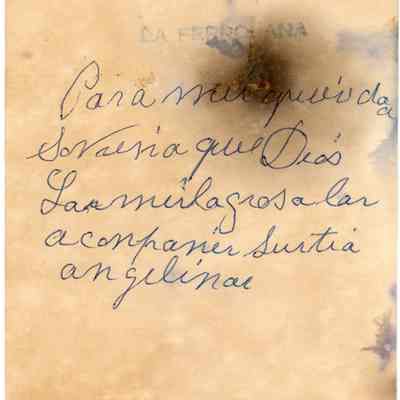 LA FERROLANA
Para mi querida
Sovania que Dios
La milagrosa lan
aconpañen Su tia
angelina